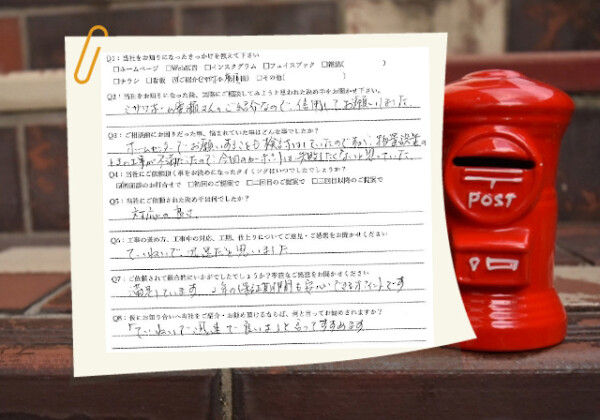 Q1：当社をお知りになったきっかけを教えて下さい
□ホームページ □Web広告 □インスタグラム □フェイスブック □雑誌( )
□チラシ □看板 ☑ご紹介( 様) □その他( )
Q2：当社をお知りになった後、実際に相談してみようと思われた決め手をお聞かせ下さい。
さんのご紹介なので 信用してお願いしました
Q3：ご相談前にお困りだった事、悩まれていた事はどんな事でしたか？
ホームセンターでお願いすることも検討していたのであるが、物置設置の
ときの工事が不満だったので、今回のカーポートは失敗したくないと思っていた。
Q4：当社にご依頼頂く事をお決めになったタイミングはいつでしたでしょうか？
☑初面談のお打合せで □初回のご提案で □二回目のご提案で □三回目以降のご提案で
Q5：当社にご依頼された決め手は何でしたか？
対応の良さ。
Q6：工事の進め方、工事中の対応、工期、仕上りについてご意見・ご感想をお聞かせください
ていねいで 迅速だと思いました
Q7：ご依頼されて総合的にいかがでしたでしょうか？率直なご感想をお聞かせください
満足しています。2年の保証期間も安心できるポイントです
Q8：仮にお知り合いへ当社をご紹介・お勧め頂けるならば、何と言ってお勧めされますか？
「ていねいで、迅速で、良いよ」と言ってすすめます
POST